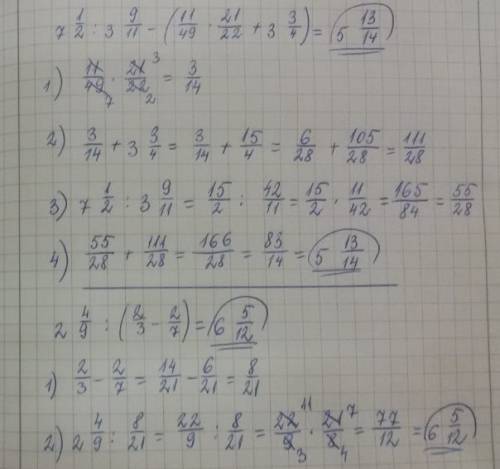 7 1/2 : 3 9/11 - (11/49 · 21/22 + 3 3/4) = 5 13/14
1) 11/49 7 · 21/22 3 2 = 3/14
2) 3/14 + 3 3/4 = 3/14 + 15/4 = 6/28 + 105/28 = 111/28
3) 7 1/2 : 3 9/11 = 15/2 : 42/11 = 15/2 · 11/42 = 165/84 = 55/28
4) 55/28 + 111/28 = 166/28 = 83/14 = 5 13/14
2 4/9 : (2/3 - 2/7) = 6 5/12
1) 2/3 - 2/7 = 14/21 - 6/21 = 8/21
2) 2 4/9 : 8/21 = 22/9 : 8/21 = 22/9 11 3 · 21/8 7 4 = 77/12 = 6 5/12